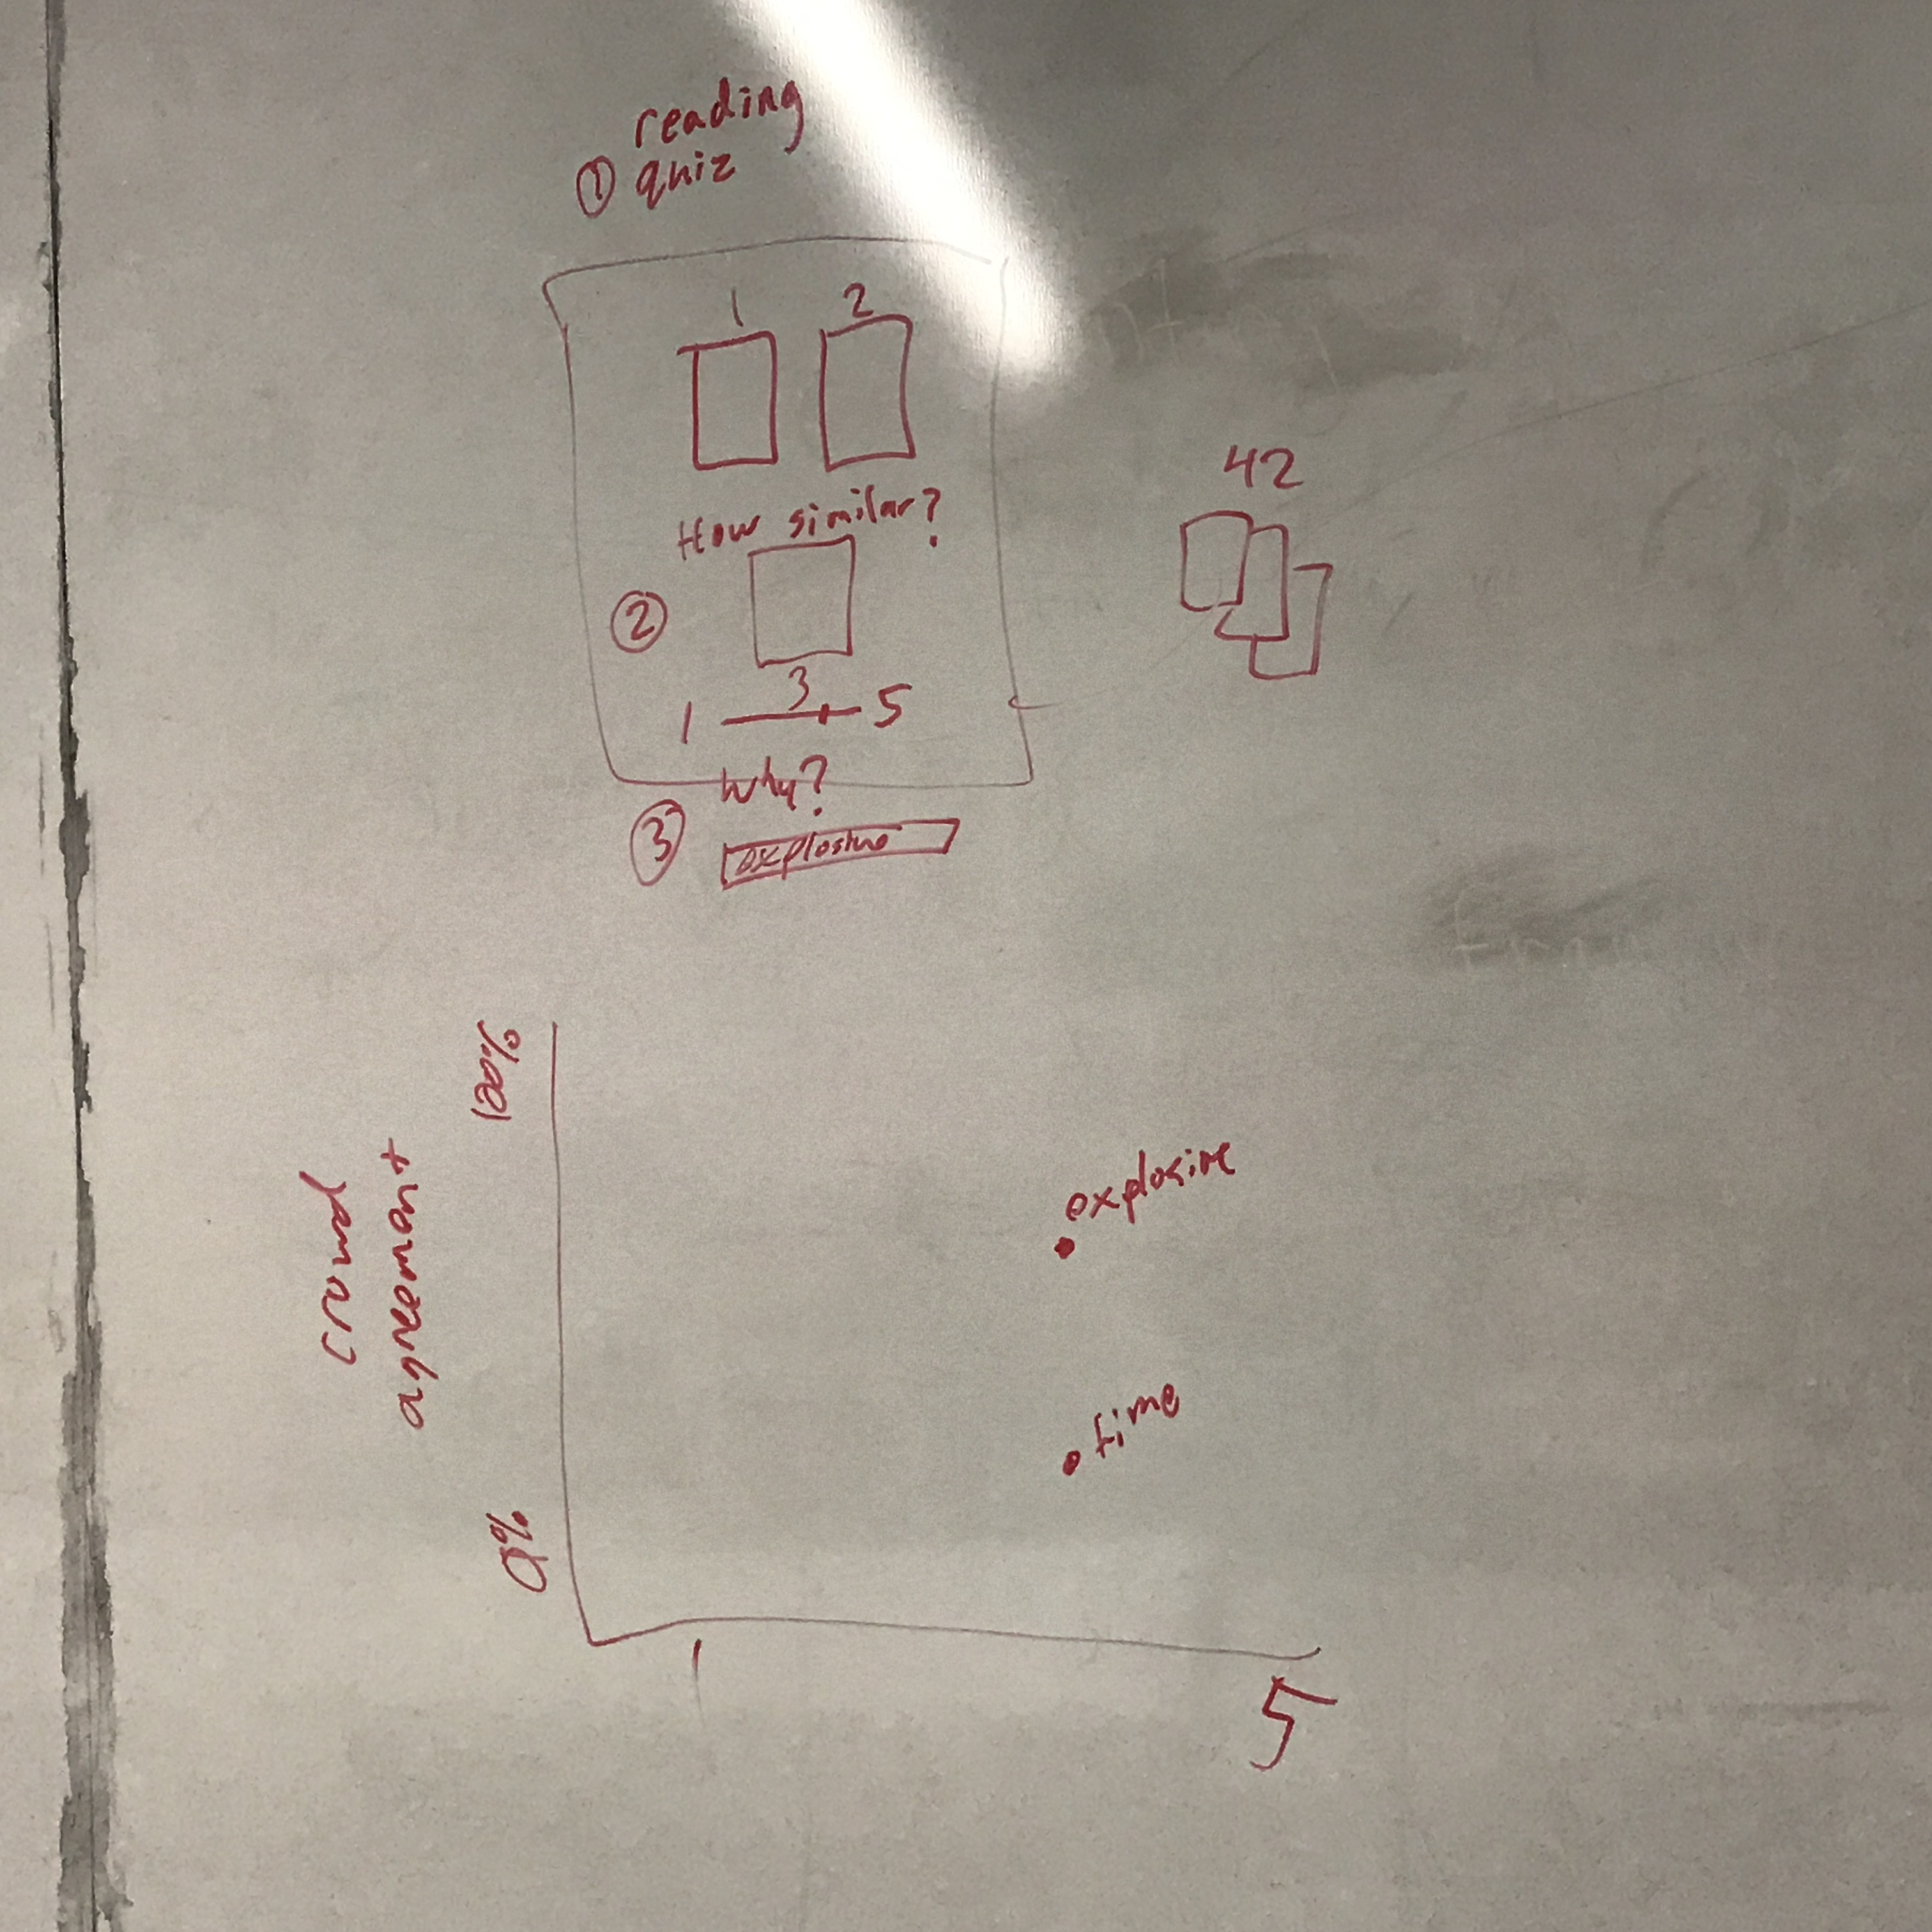 reading
① quiz
1 2
How similar?
②
3
1 5
Why?
③ explosive
42
100%
crowd
agreement
0%
explosive
time
1
5